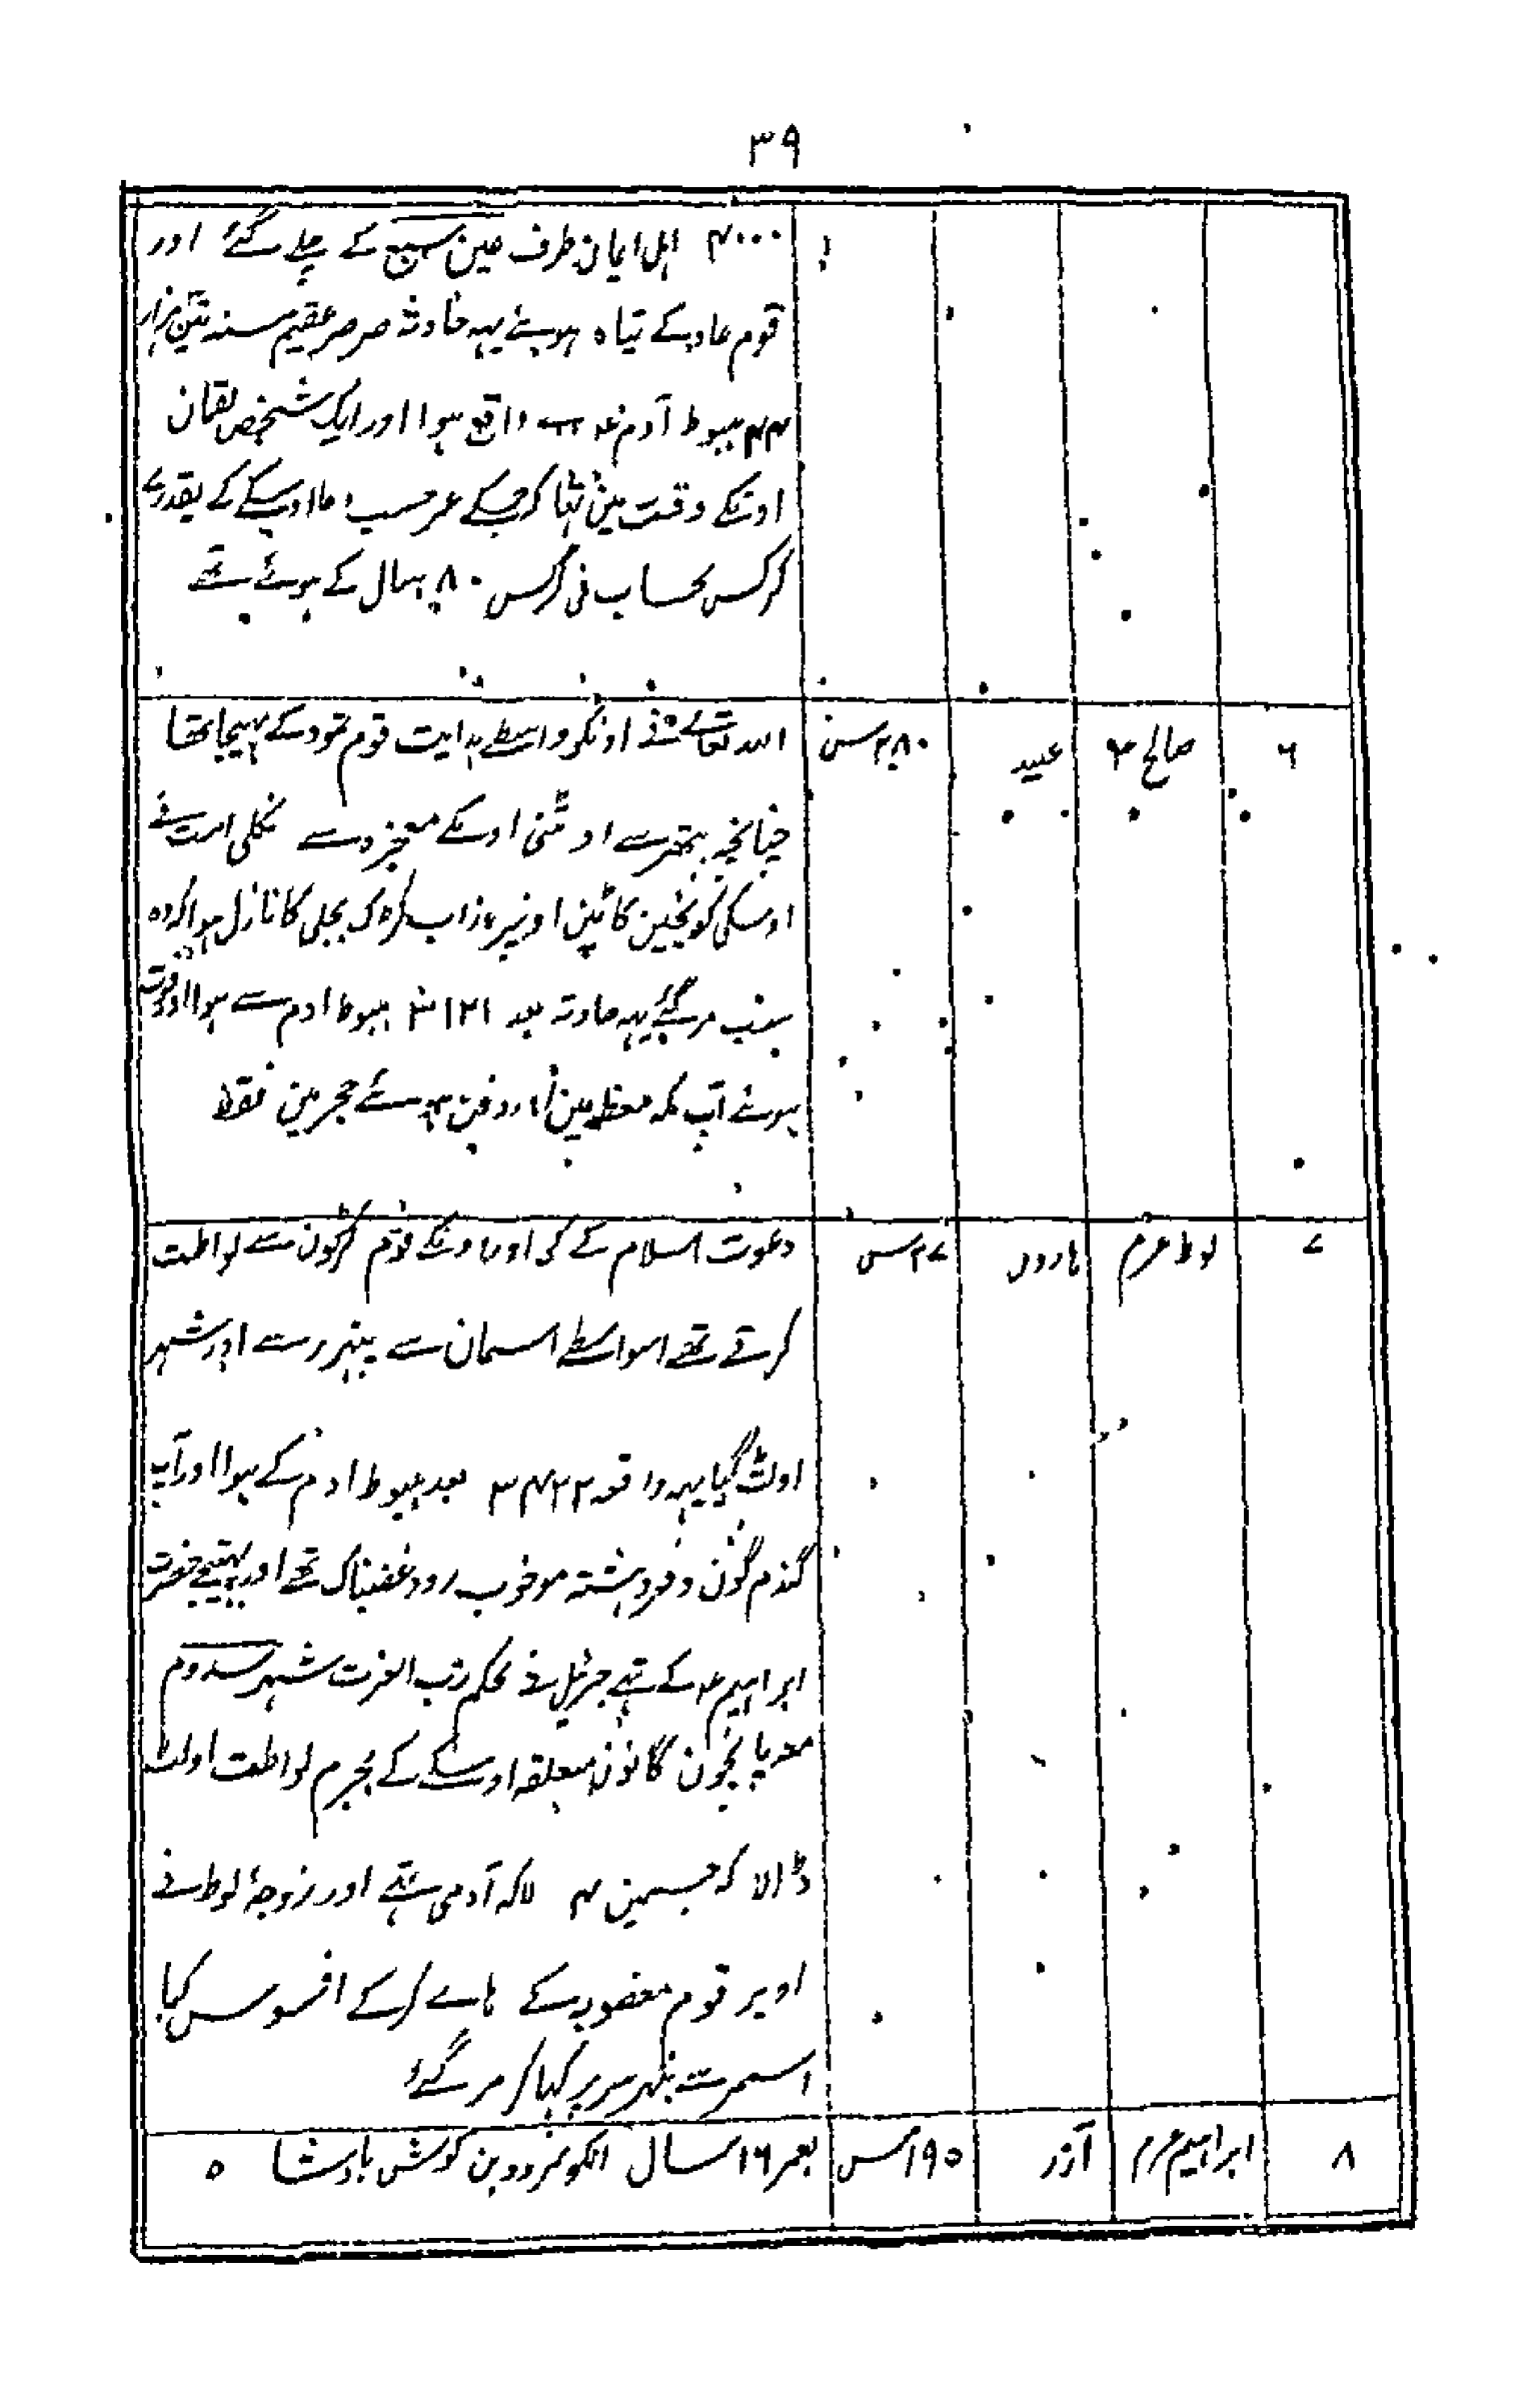 ۳۹
۴۰۰۰ اہل ایمان طرف عین سبع کے چلے گئے اور
قوم عاد کے تباہ ہوئے یہہ حادثہ صرصر عقیم سنہ تین ہزار
ہبوط آدم ع سے واقع ہوا اور ایک شخص لقمان
اونکے وقت مین تھا کہ جسکے عمر حسب دعا اوسکے کے بقدر
کرگس بحساب فی کرگس ۸۰ سال کے ہوئے تھے
۶ صالح ع عبید ۲۸۰ سن اللہ تعالے نے اونکو واسطے ہدایت قوم ثمود کے بھیجا تھا
چنانچہ پتھر سے اوٹنی اوسکے معجزہ سے نکلی امت نے
اوسکی کونچین کاٹین اونپر عذاب کڑک بجلی کا نازل ہوا کہ وہ
سب مر گئے یہہ حادثہ بعد ہبوط ادم سے ہوا اور فوت
ہوئے آپ مکہ معظمہ مین اور دفن ہوئے حجر مین فقط
۷ لوط ع م ہارون دعوت اسلام کے کی اور اونکے قوم لڑکون سے لواطت
کرتے تھے اسواسطے اسمان سے پتھر برسے اور شہر
اولٹ گیا یہہ واقعہ ۳۴۲۲ بعد ہبوط ادم کے ہوا اور آپ
گندم گون و فروہشتہ مو خوب رو و غضبناک تھے اور بھتیجے حضرت
ابراہیم ع کے تھے جبرئیل نے بحکم رب العزت شہر سدوم
معہ پانچون گانون متعلقہ اوسکے کے بجرم لواطت اولٹ
ڈالا کہ جسمین ۴ لاکہ آدمی تھے اور زوجۂ لوط نے
اوپر قوم مغضوبہ کے ہاے کرکے افسوس کیا
اسمرتبہ پتھر سر پر کہا کر مر گئے
۸ ابراہیم ع م آزر ۱۹۵ سن بعمر ۱۶ سال انکو نمرود بن کوش بادشا ہ